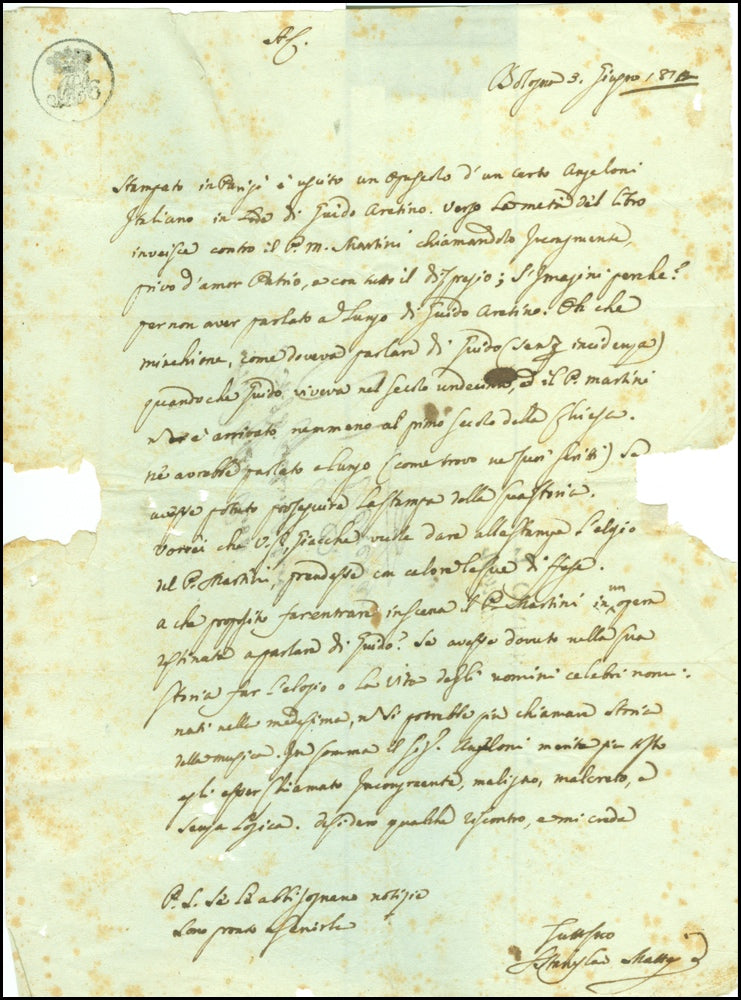 AC.
Bologna 3. Giugno 181
Stampato in Parigi è uscito un Opuscolo d'un certo Angeloni
Italiano in Lode di Guido Aretino. Verso la metà del libro
inveisce contro il P. M. Martini chiamandolo Incongruente,
privo d'amor Patrio, e con tutto il disprezio; S'Imagini perche?
per non aver parlato a Lungo di Guido Aretino. Oh che
minchione, come doveva parlare di Guido (senz incidenza)
quando che Guido viveva nel secolo undecimo, e il P. Martini
non è arrivato nemmeno al primo secolo della Chiesa.
ne avrebbe parlato a lungo (come trovo ne suoi scritti) se
avesse potuto proseguire la stampa della sua storia.
Vorrei che V.S., giacche vuole dare alla stampa l'elogio
del P. Martini, prendesse con calore le sue difese.
a che proposito far entrare in scena il P. Martini in un opera
destinata a parlare di Guido? Se avesse dovuto nella sua
storia far l'elogio o la vita degli uomini celebri nomi-
nati nella medesima, non si potrebbe più chiamare storia
della musica. In somma il Sig. Angeloni merita più tosto
egli esser chiamato Incongruente, maligno, malcreato, e
senza Logica. desidero qualche riscontro, e mi creda
P. S. Se Le abbisognano notizie
sono pronto a servirla
Tutto suo
Stanislao Mattei